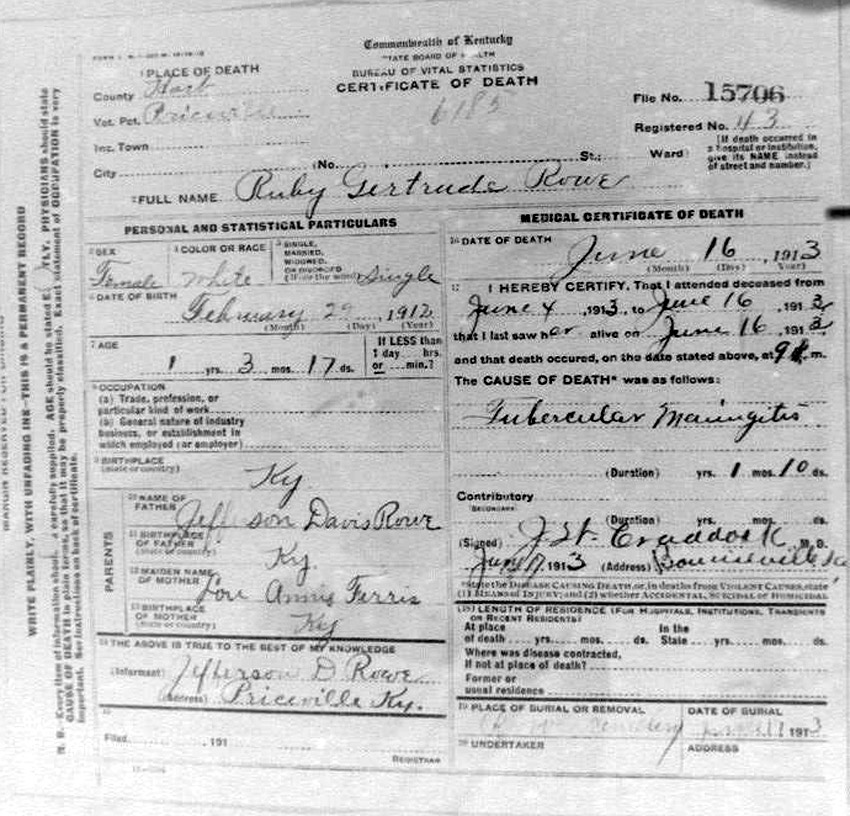 Commonwealth of Kentucky
STATE BOARD OF HEALTH
BUREAU OF VITAL STATISTICS
CERTIFICATE OF DEATH
6185
1 PLACE OF DEATH
County Hart
Vot. Pct. Priceville
Inc. Town
City
(No. St.; Ward)
File No. 15706
Registered No. 43
[If death occurred in
a hospital or institution,
give its NAME instead
of street and number.]
2 FULL NAME Ruby Gertrude Rowe
PERSONAL AND STATISTICAL PARTICULARS
3 SEX
Female
4 COLOR OR RACE
White
5 SINGLE,
MARRIED,
WIDOWED,
OR DIVORCED
(Write the word) Single
6 DATE OF BIRTH
February 29, 1912
(Month) (Day) (Year)
7 AGE
1 yrs. 3 mos. 17 ds.
If LESS than
1 day hrs.
or min.?
8 OCCUPATION
(a) Trade, profession, or
particular kind of work
(b) General nature of industry
business, or establishment in
which employed (or employer)
9 BIRTHPLACE
(State or country)
Ky.
PARENTS
10 NAME OF
FATHER
Jefferson Davis Rowe
11 BIRTHPLACE
OF FATHER
(State or country)
Ky.
12 MAIDEN NAME
OF MOTHER
Lou Annis Ferris
13 BIRTHPLACE
OF MOTHER
(State or country)
Ky
14 THE ABOVE IS TRUE TO THE BEST OF MY KNOWLEDGE
(Informant) Jefferson D. Rowe
(Address) Priceville Ky.
15
Filed , 191
REGISTRAR
MEDICAL CERTIFICATE OF DEATH
16 DATE OF DEATH
June 16, 1913
(Month) (Day) (Year)
17 I HEREBY CERTIFY, That I attended deceased from
June 4, 1913, to June 16, 1913,
that I last saw her alive on June 16, 1913,
and that death occured, on the date stated above, at 9 m.
The CAUSE OF DEATH* was as follows:
Tubercular Maningitis
(Duration) yrs. 1 mos. 10 ds.
Contributory
(SECONDARY)
(Duration) yrs. mos. ds.
(Signed) Craddock M. D.
June 17, 1913 (Address) Bonnieville Ky
*State the DISEASE CAUSING DEATH, or, in deaths from VIOLENT CAUSES, state
(1) MEANS OF INJURY; and (2) whether ACCIDENTAL, SUICIDAL or HOMICIDAL
18 LENGTH OF RESIDENCE (FOR HOSPITALS, INSTITUTIONS, TRANSIENTS
OR RECENT RESIDENTS)
At place In the
of death yrs. mos. ds. State yrs. mos. ds.
Where was disease contracted,
if not at place of death?
Former or
usual residence
19 PLACE OF BURIAL OR REMOVAL
Cemetery
DATE OF BURIAL
1913
20 UNDERTAKER
ADDRESS
WRITE PLAINLY, WITH UNFADING INK—THIS IS A PERMANENT RECORD
N. B.—Every item of information should carefully supplied. AGE should be stated PHYSICIANS should state
CAUSE OF DEATH in plain terms, so that it may be properly classified. Exact statement of OCCUPATION is very
important. See instructions on back of certificate.